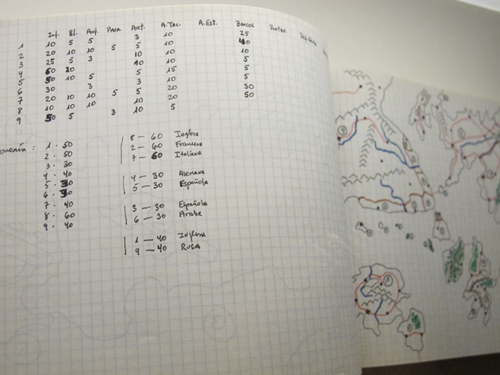 Inf. Bl. Art. Para Ant. A.Tac. A.Est. Barcos Portav.
1 10 5 5 3 10 25
2 20 10 10 5 5 10 40
3 25 5 3 10 10 10
4 60 20 10 10 5
5 50 10 5 5 15 5
6 30 3 3 10 5
7 20 10 10 5 5 20 30
8 10 10 10 10 20 50
9 50 5 3 10 5
1 - 50
2 - 50
3 - 30
4 - 40
7 - 40
8 - 60
9 - 40
8 - 60 Inglesa
2 - 60 Francesa
7 - 60 Italiana
4 - 30 Alemana
5 - 30 Española
3 - 30 Española
6 - 30 Arabe
1 - 40 Inglesa
9 - 40 Rusa